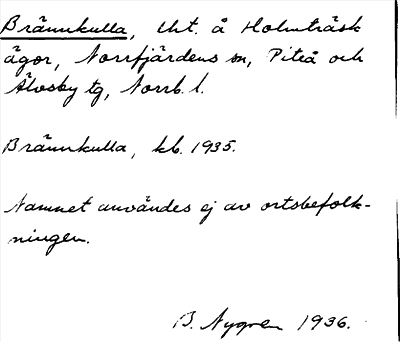 Brännkulla, lht. å Holmträsk
ägor, Norrfjärdens sn, Piteå och
Älvsby tg, Norrb. l.
Brännkulla, kb. 1935.
Namnet användes ej av ortsbefolk-
ningen.
B. Nygren 1936.